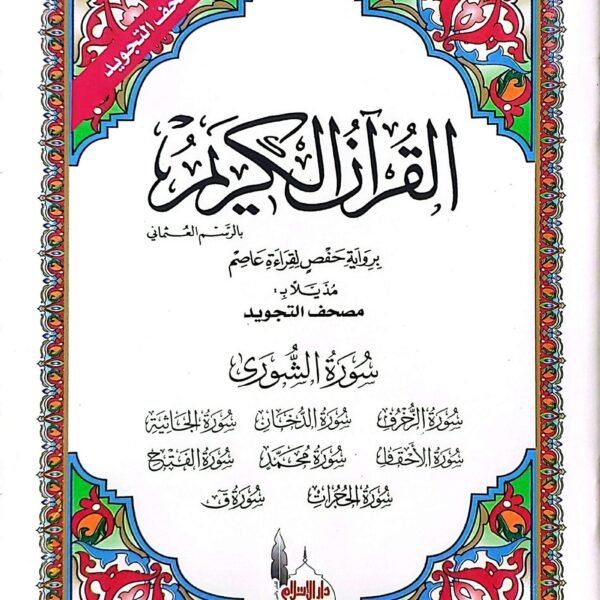 مصحف التجويد
القُرآنُ الكَرِيمُ
بالرَّسم العُثماني
بِرِوَايَة حَفْصٍ لِقِرَاءَةِ عَاصِم
مُذَيَّلاً بـ:
مصحف التجويد
سُورَةُ الشُّورَى
سُورَةُ الزُّخْرُف سُورَةُ الدُّخَان سُورَةُ الجَاثِيَة
سُورَةُ الأَحْقَاف سُورَةُ مُحَمَّد سُورَةُ الفَتْح
سُورَةُ الحُجُرَات سُورَةُ قَ
دار الإسلام